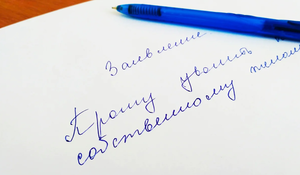 Заявление
Прошу уволить
собственному желан